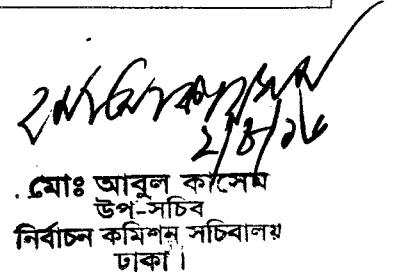 ২/৪/১৮
মোঃ আবুল কাসেম
উপ-সচিব
নির্বাচন কমিশন সচিবালয়
ঢাকা।